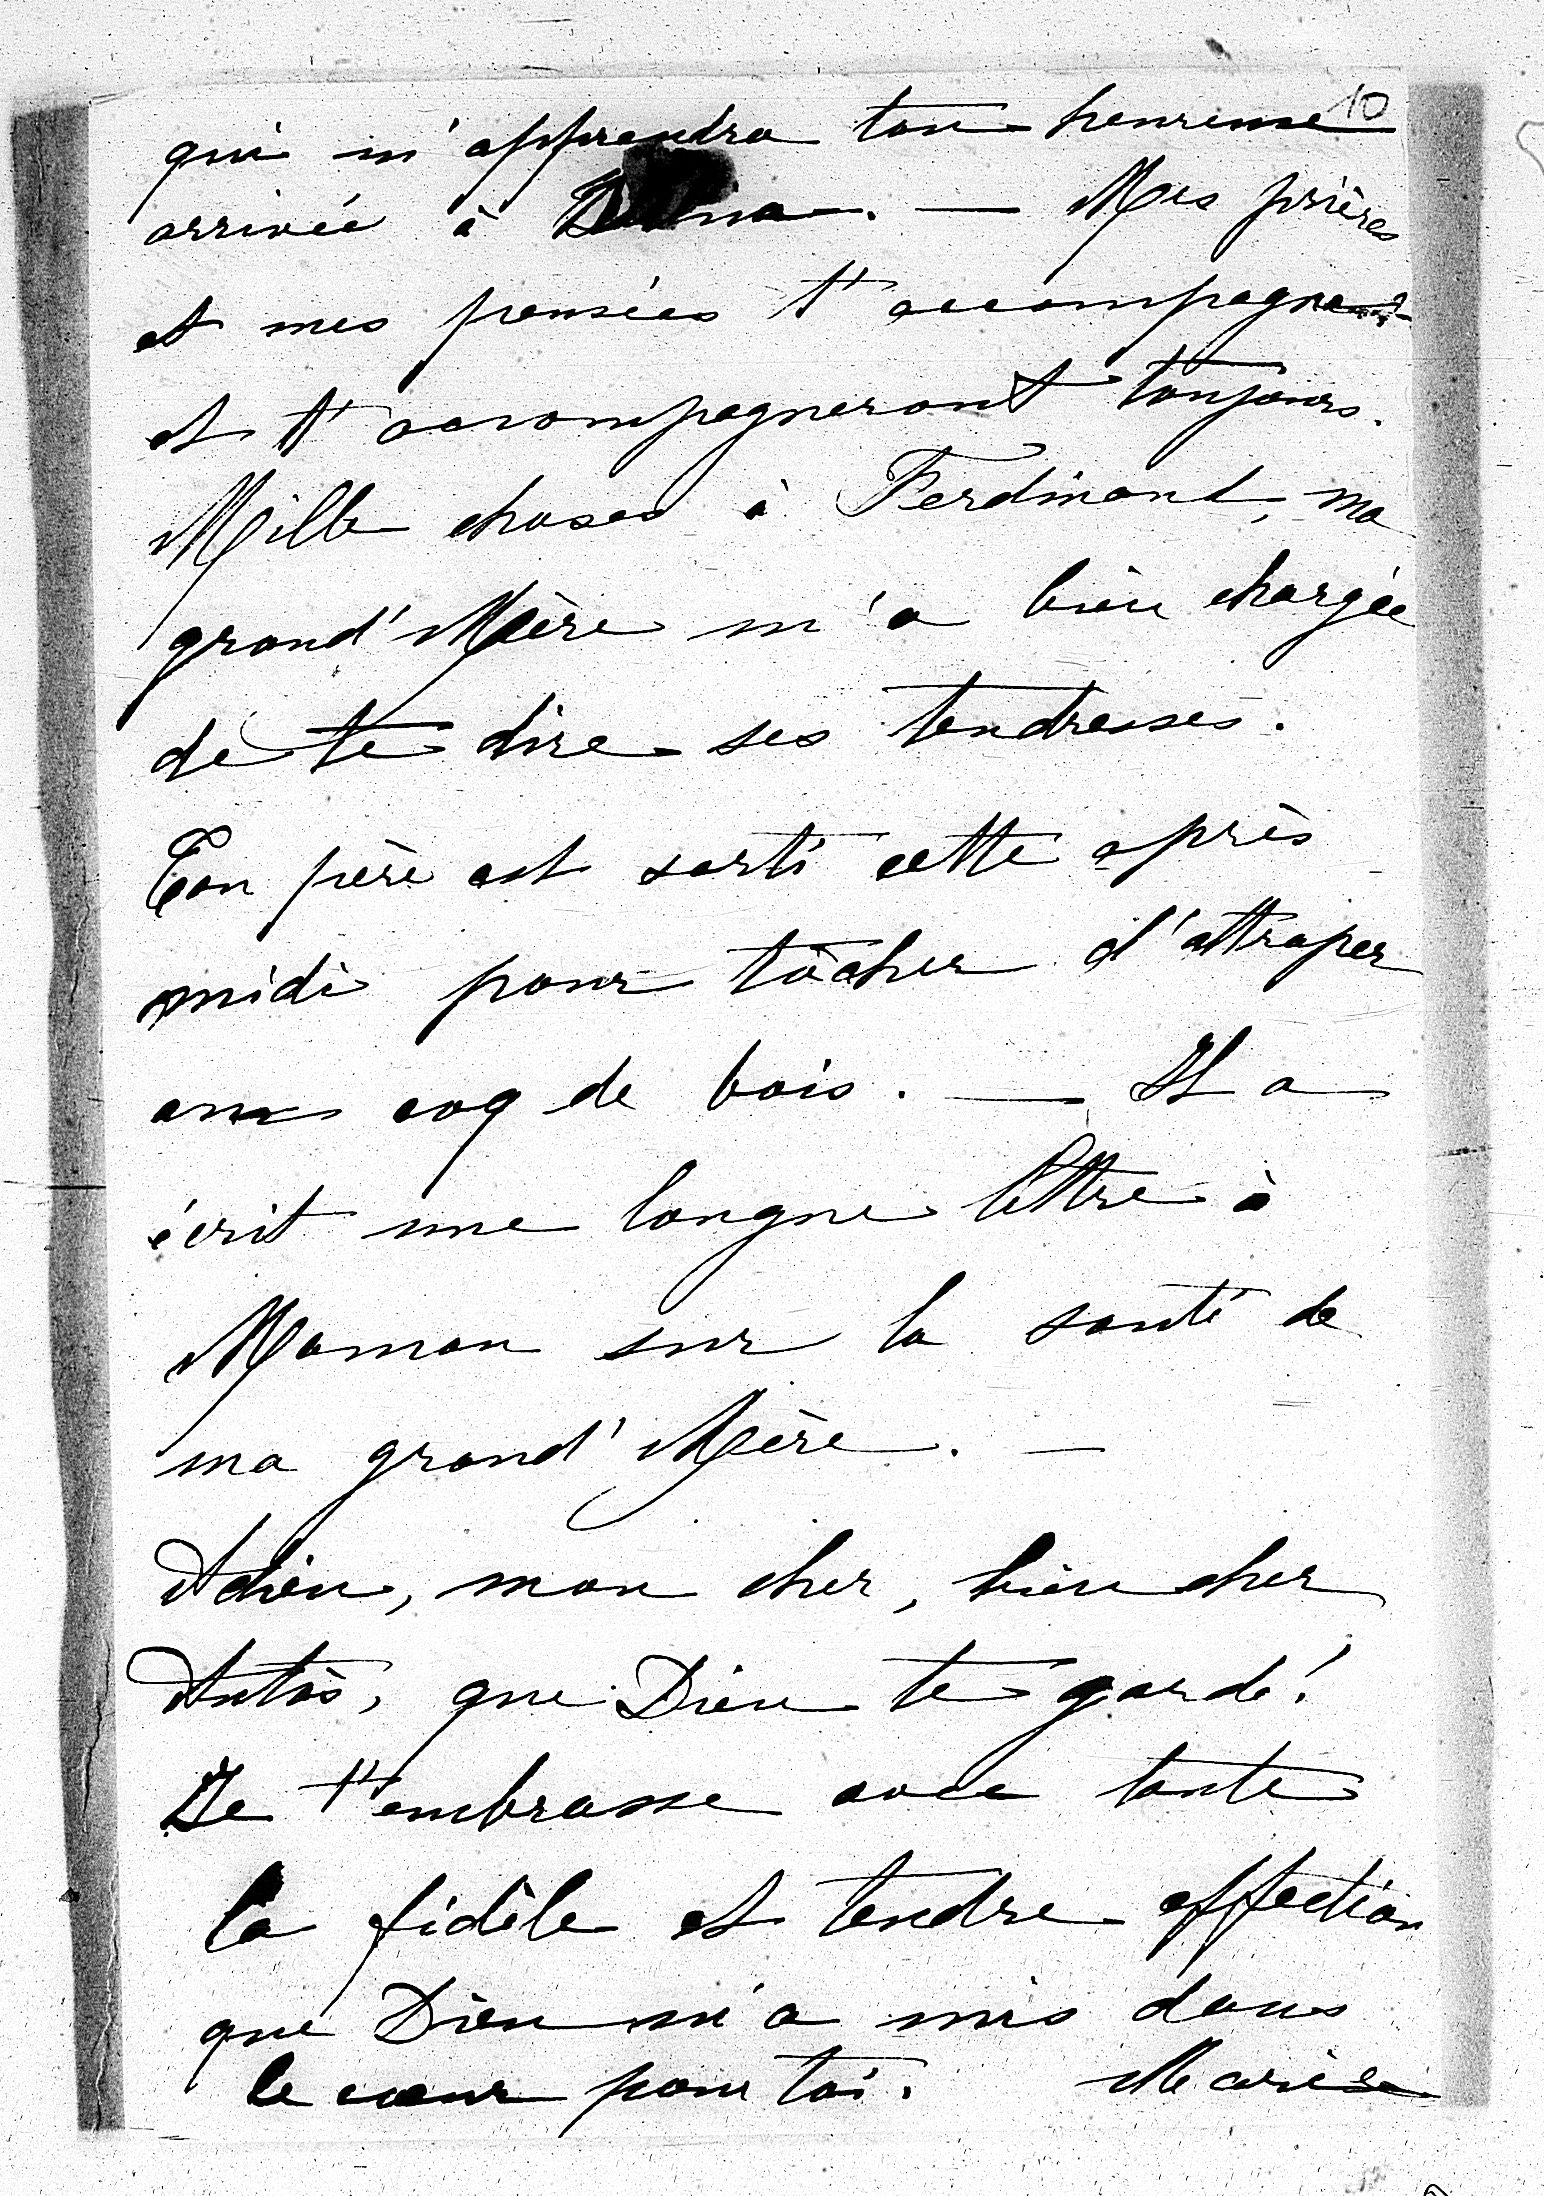 10
qui m'apprendra ton heureuse
arrivée à . — Mes prières
et mes pensées t'accompagnent
et t'accompagneront toujours.
Mille choses à Ferdinand, ma
grand'Mère m'a bien chargée
de te dire ses tendresses.
Ton père est sorti cette après
midi pour tâcher d'attraper
un coq de bois. — Il a
écrit une longue lettre à
Maman sur la santé de
ma grand'Mère. —
Adieu, mon cher, bien cher
Antós, que Dieu te garde!
Je t'embrasse avec toute
la fidèle et tendre affection
que Dieu m'a mis dans
le cœur pour toi. Marie